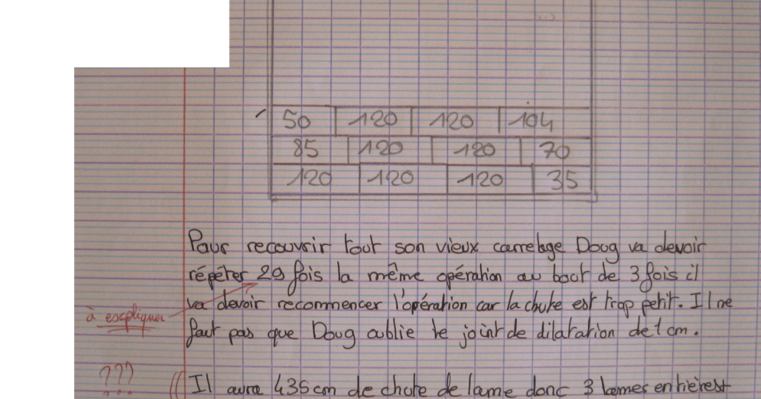 50 120 120 104
85 120 120 70
120 120 120 35
Pour recouvrir tout son vieux carrelage Doug va devoir
répéter 29 fois la même opération au bout de 3 fois il
va devoir recommencer l'opération car la chute est trop petit. Il ne
à escpliquer
faut pas que Doug oublie le joint de dilatation de 1 cm.
???
Il aura 435cm de chute de lame donc 3 lames entières